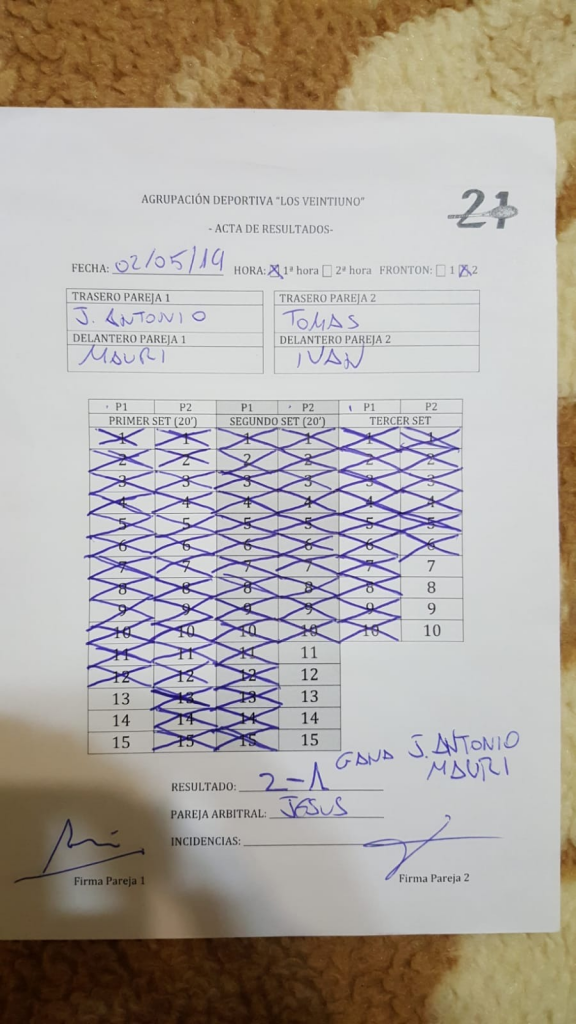 AGRUPACIÓN DEPORTIVA "LOS VEINTIUNO"
21
- ACTA DE RESULTADOS-
FECHA: 02/05/19 HORA: 1ª hora 2ª hora FRONTON: 1 2
TRASERO PAREJA 1 TRASERO PAREJA 2
J. ANTONIO TOMAS
DELANTERO PAREJA 1 DELANTERO PAREJA 2
MAURI IVAN
P1 P2 P1 P2 P1 P2
PRIMER SET (20') SEGUNDO SET (20') TERCER SET
1 1 1 1 1 1
2 2 2 2 2 2
3 3 3 3 3 3
4 4 4 4 4 4
5 5 5 5 5 5
6 6 6 6 6 6
7 7 7 7 7 7
8 8 8 8 8 8
9 9 9 9 9 9
10 10 10 10 10 10
11 11 11 11
12 12 12 12
13 13 13 13
14 14 14 14
15 15 15 15
GANA J. ANTONIO
MAURI
RESULTADO: 2-1
PAREJA ARBITRAL: JESUS
INCIDENCIAS:
Firma Pareja 1 Firma Pareja 2